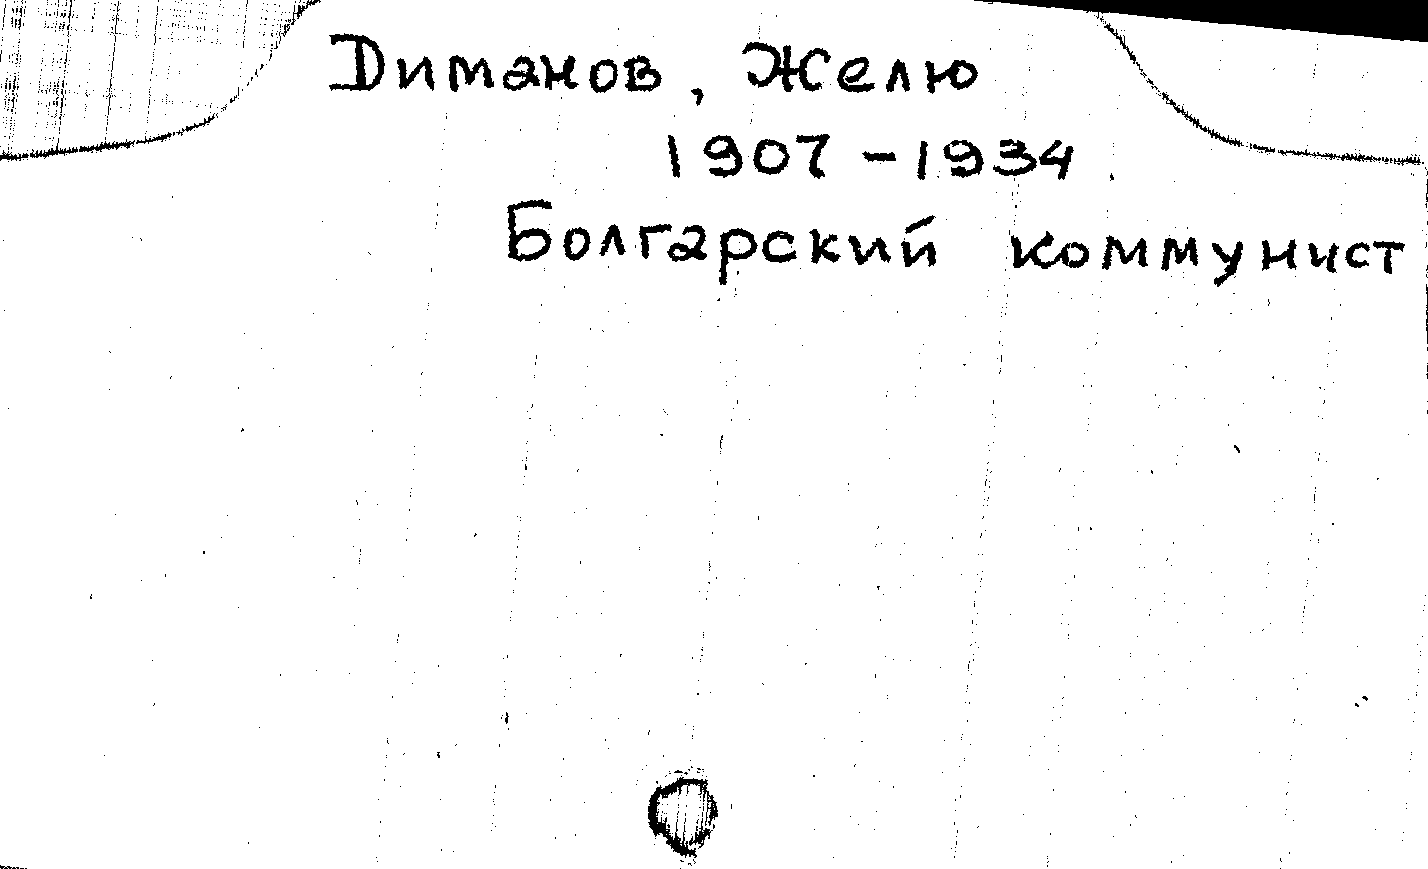 Диманов, Желю
1907 - 1934
Болгарский коммунист